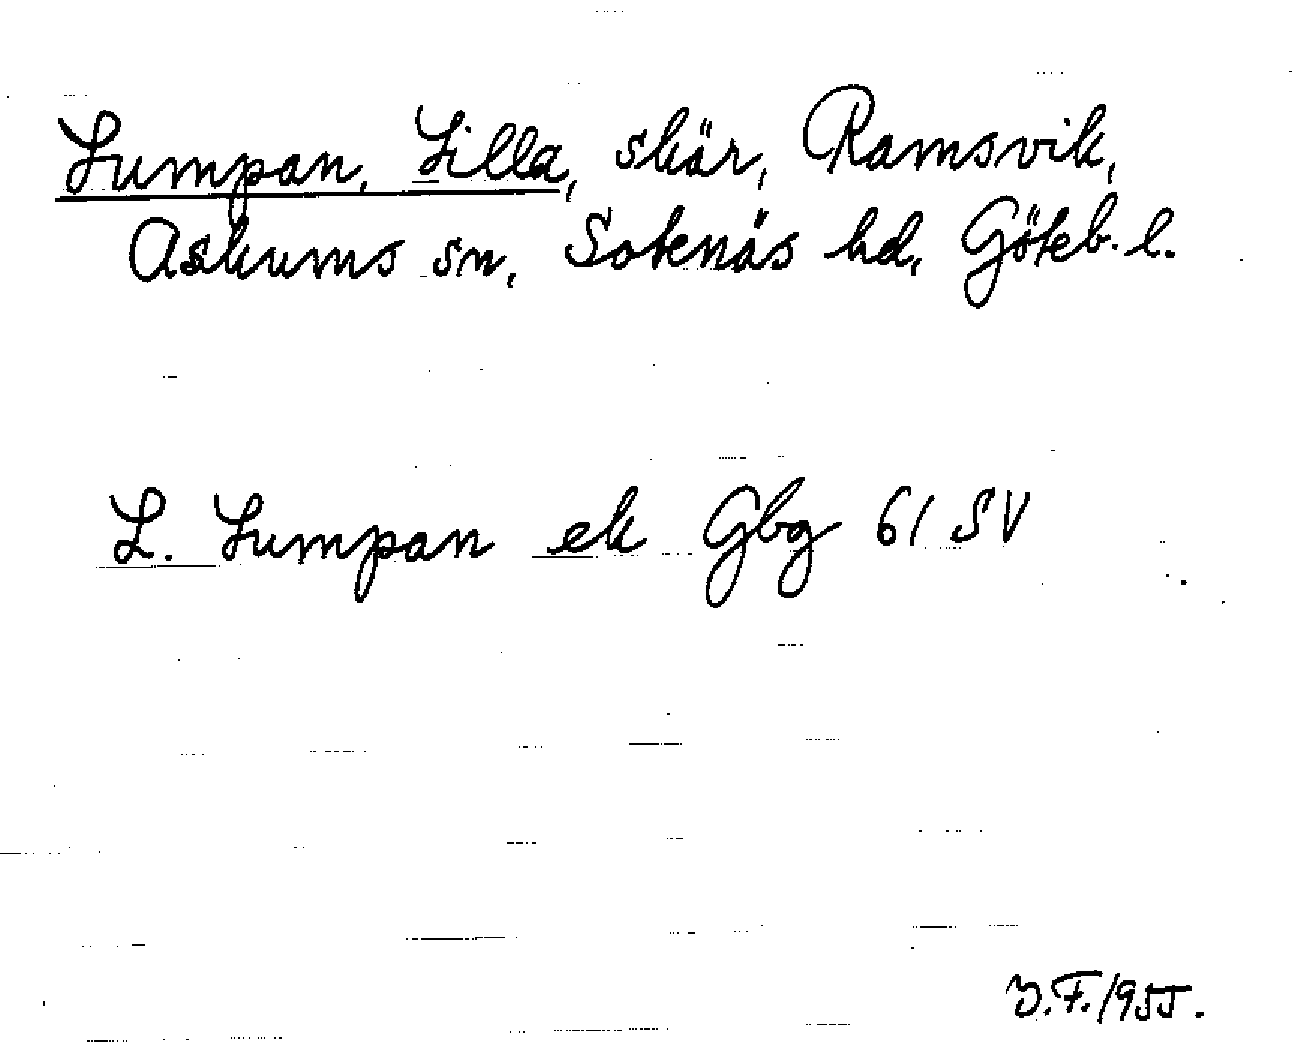 Lumpan, Lilla, skär, Ramsvik,
Askums sn, Sotenäs hd, Göteb. l.
L. Lumpan ek Gbg 61 SV
Y.F. 1955.